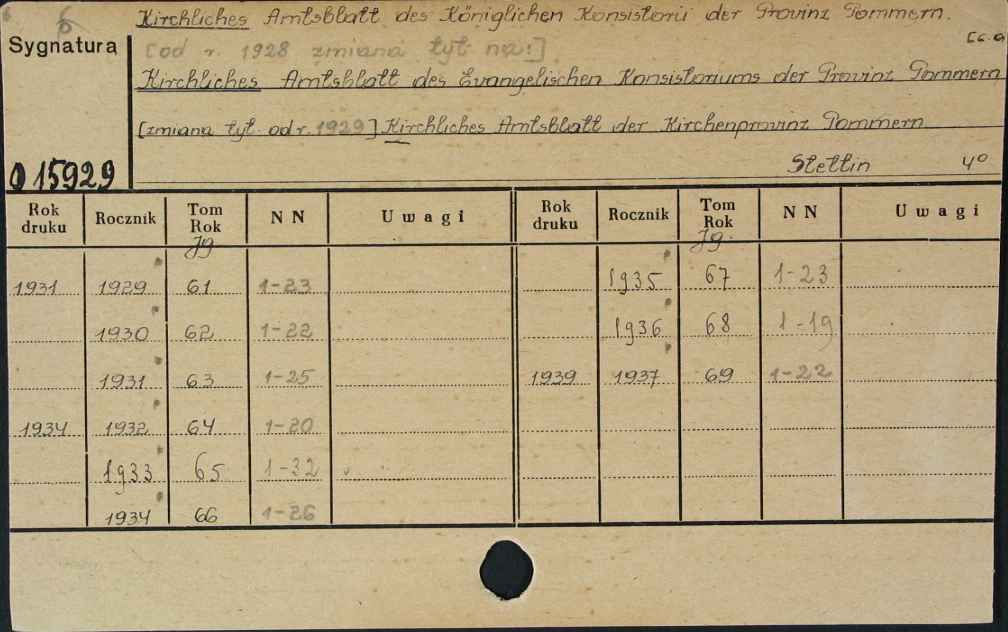 6
Kirchliches Amtsblatt des Königlichen Konsistorii der Provinz Pommern.
Sygnatura
[od r. 1928 zmiana tyt. na:]
Kirchliches Amtsblatt des Evangelischen Konsistoriums der Provinz Pommern
[zmiana tyt. od r. 1929] Kirchliches Amtsblatt der Kirchenprovinz Pommern
Stettin 4º
O 15929
Rok druku Rocznik Tom Rok NN Uwagi Rok druku Rocznik Tom Rok NN Uwagi
Jg Jg.
1931 1929 61 1-23 1935 67 1-23
1930 62 1-22 1936 68 1-19
1931 63 1-25 1939 1937 69 1-22
1934 1932 64 1-20
1933 65 1-32
1934 66 1-26